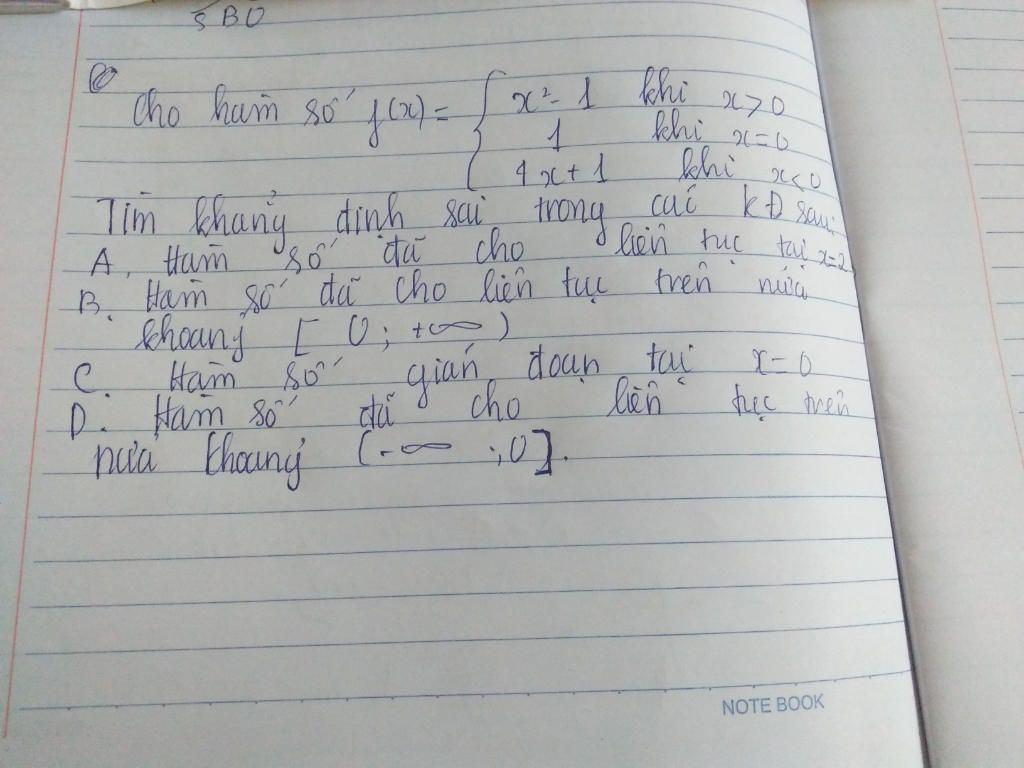 SBO
Cho hàm số f(x) = { x² - 1 khi x > 0
1 khi x = 0
4x + 1 khi x < 0
Tìm khẳng định sai trong các KĐ sau:
A. Hàm số đã cho liên tục tại x=2
B. Hàm số đã cho liên tục trên nửa
khoảng [ 0 ; +∞ )
C. Hàm số gián đoạn tại x = 0
D. Hàm số đã cho liên tục trên
nửa khoảng (-∞ ; 0].
NOTE BOOK